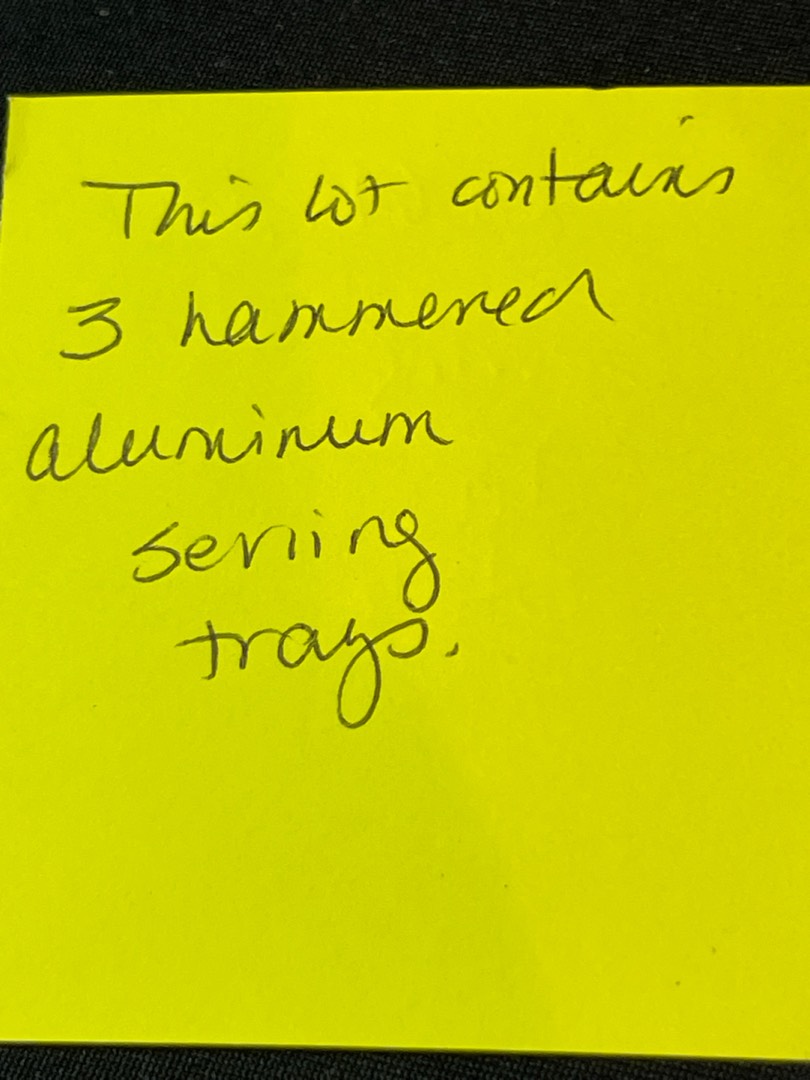 This lot contains
3 hammered
aluminum
serving
trays.